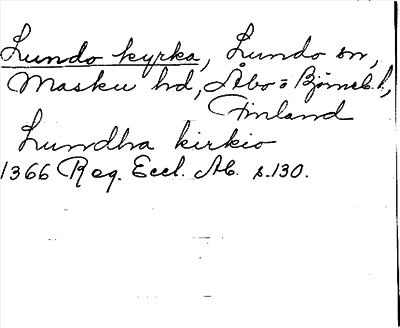 Lundo kyrka, Lundo sn,
Masku hd, Åbo= Björneb. l.,
Finland
Lundha kirkio
1366 Reg. Eccl. Ab. s.130.